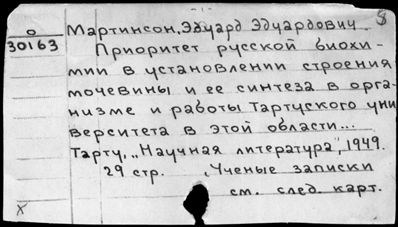 - 1 -
8
о
30163
Мартинсон, Эдуард Эдуардович.
Приоритет русской биохи-
мии в установлении строения
мочевины и ее синтеза в орга-
низме и работы Тартуского уни
верситета в этой области...
Тарту, „Научная литература", 1949.
29 стр. „Ученые записки
см. след. карт.
X